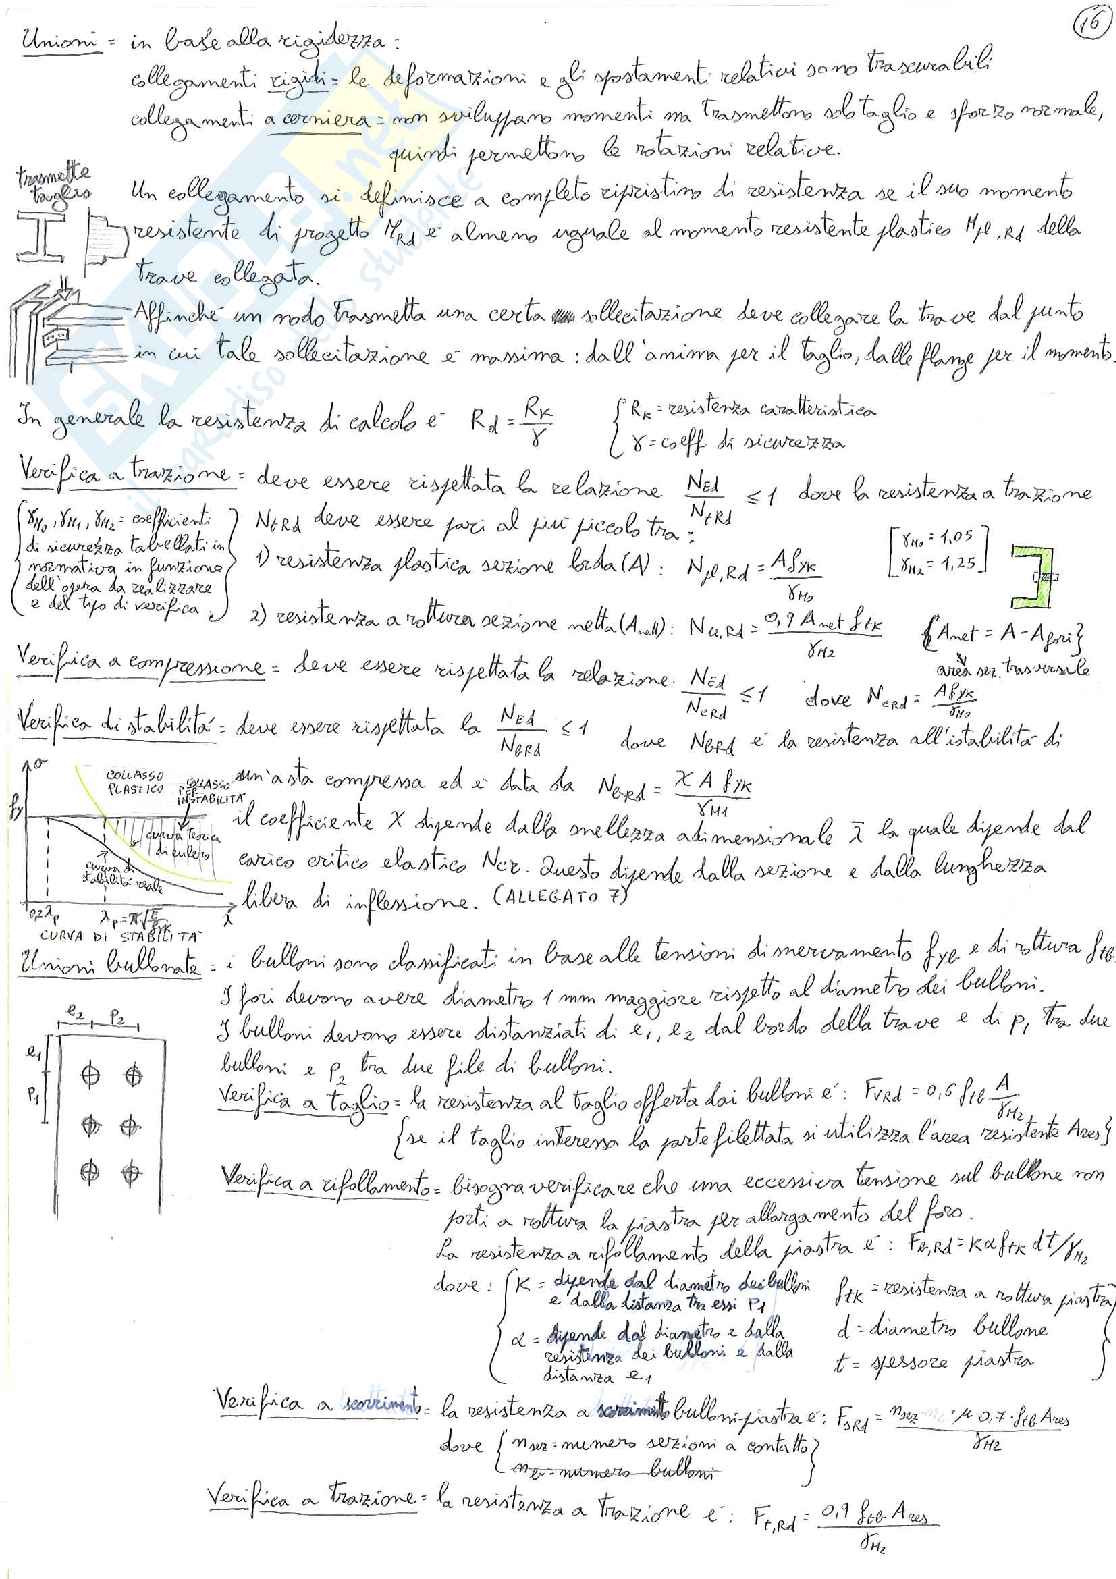 16
Unioni = in base alla rigidezza :
collegamenti rigidi = le deformazioni e gli spostamenti relativi sono trascurabili
collegamenti a cerniera = non sviluppano momenti ma trasmettono solo taglio e sforzo normale,
quindi permettono le rotazioni relative.
trasmette
taglio
Un collegamento si definisce a completo ripristino di resistenza se il suo momento
resistente di progetto M_Rd è almeno uguale al momento resistente plastico M_pl,Rd della
trave collegata.
Affinché un nodo trasmetta una certa sollecitazione deve collegare la trave dal punto
in cui tale sollecitazione è massima : dall'anima per il taglio, dalle flange per il momento.
In generale la resistenza di calcolo è R_d = R_k/γ { R_k = resistenza caratteristica
γ = coeff di sicurezza
Verifica a trazione = deve essere rispettata la relazione N_Ed/N_tRd ≤ 1 dove la resistenza a trazione
N_tRd deve essere pari al più piccolo tra :
{ γ_M0, γ_M1, γ_M2 = coefficienti
di sicurezza tabellati in
normativa in funzione
dell'opera da realizzare
e del tipo di verifica }
[ γ_M0 = 1,05
γ_M2 = 1,25 ]
1) resistenza plastica sezione lorda (A) : N_pl,Rd = A f_yk/γ_M0
2) resistenza a rottura sezione netta (A_nett) : N_u,Rd = 0,9 A_net f_tk/γ_M2 { A_net = A - A_fori }
area sez. trasversale
Verifica a compressione = deve essere rispettata la relazione N_Ed/N_cRd ≤ 1 dove N_cRd = A f_yk/γ_M0
Verifica di stabilità = deve essere rispettata la N_Ed/N_bRd ≤ 1 dove N_bRd è la resistenza all'istabilità di
un'asta compressa ed è data da N_b,Rd = χ A f_yk/γ_M1
il coefficiente χ dipende dalla snellezza adimensionale λ̄ la quale dipende dal
carico critico elastico Ncr. Questo dipende dalla sezione e dalla lunghezza
libera di inflessione. (ALLEGATO 7)
σ
f_y
COLLASSO
PLASTICO
COLLASSO
PER
INSTABILITÀ
curva teorica
di eulero
curva di
stabilità reale
0,2 λ_p
λ_p = π√E/f_yk
λ
CURVA DI STABILITÀ
Unioni bullonate = i bulloni sono classificati in base alle tensioni di snervamento f_yb e di rottura f_tb.
I fori devono avere diametro 1 mm maggiore rispetto al diametro dei bulloni.
I bulloni devono essere distanziati di e1, e2 dal bordo della trave e di p1 tra due
bulloni e p2 tra due file di bulloni.
e2 p2
e1
p1
Verifica a taglio = la resistenza al taglio offerta dai bulloni è : F_vRd = 0,6 f_tb A/γ_M2
{ se il taglio interessa la parte filettata si utilizza l'area resistente Ares }
Verifica a rifollamento = bisogna verificare che una eccessiva tensione sul bullone non
porti a rottura la piastra per allargamento del foro.
La resistenza a rifollamento della piastra è : F_b,Rd = k α f_tk d t/γ_M2
dove : { K = dipende dal diametro dei bulloni
e dalla distanza tra essi p1
α = dipende dal diametro e dalla
resistenza dei bulloni e dalla
distanza e1
f_tk = resistenza a rottura piastra
d = diametro bullone
t = spessore piastra }
Verifica a scorrimento = la resistenza a scorrimento bulloni-piastra è : F_sRd = n_sez · μ 0,7 · f_tb Ares/γ_M2
dove { n_sez = numero sezioni a contatto
n_b = numero bulloni }
Verifica a trazione = la resistenza a trazione è : F_t,Rd = 0,9 f_tb Ares/γ_M2